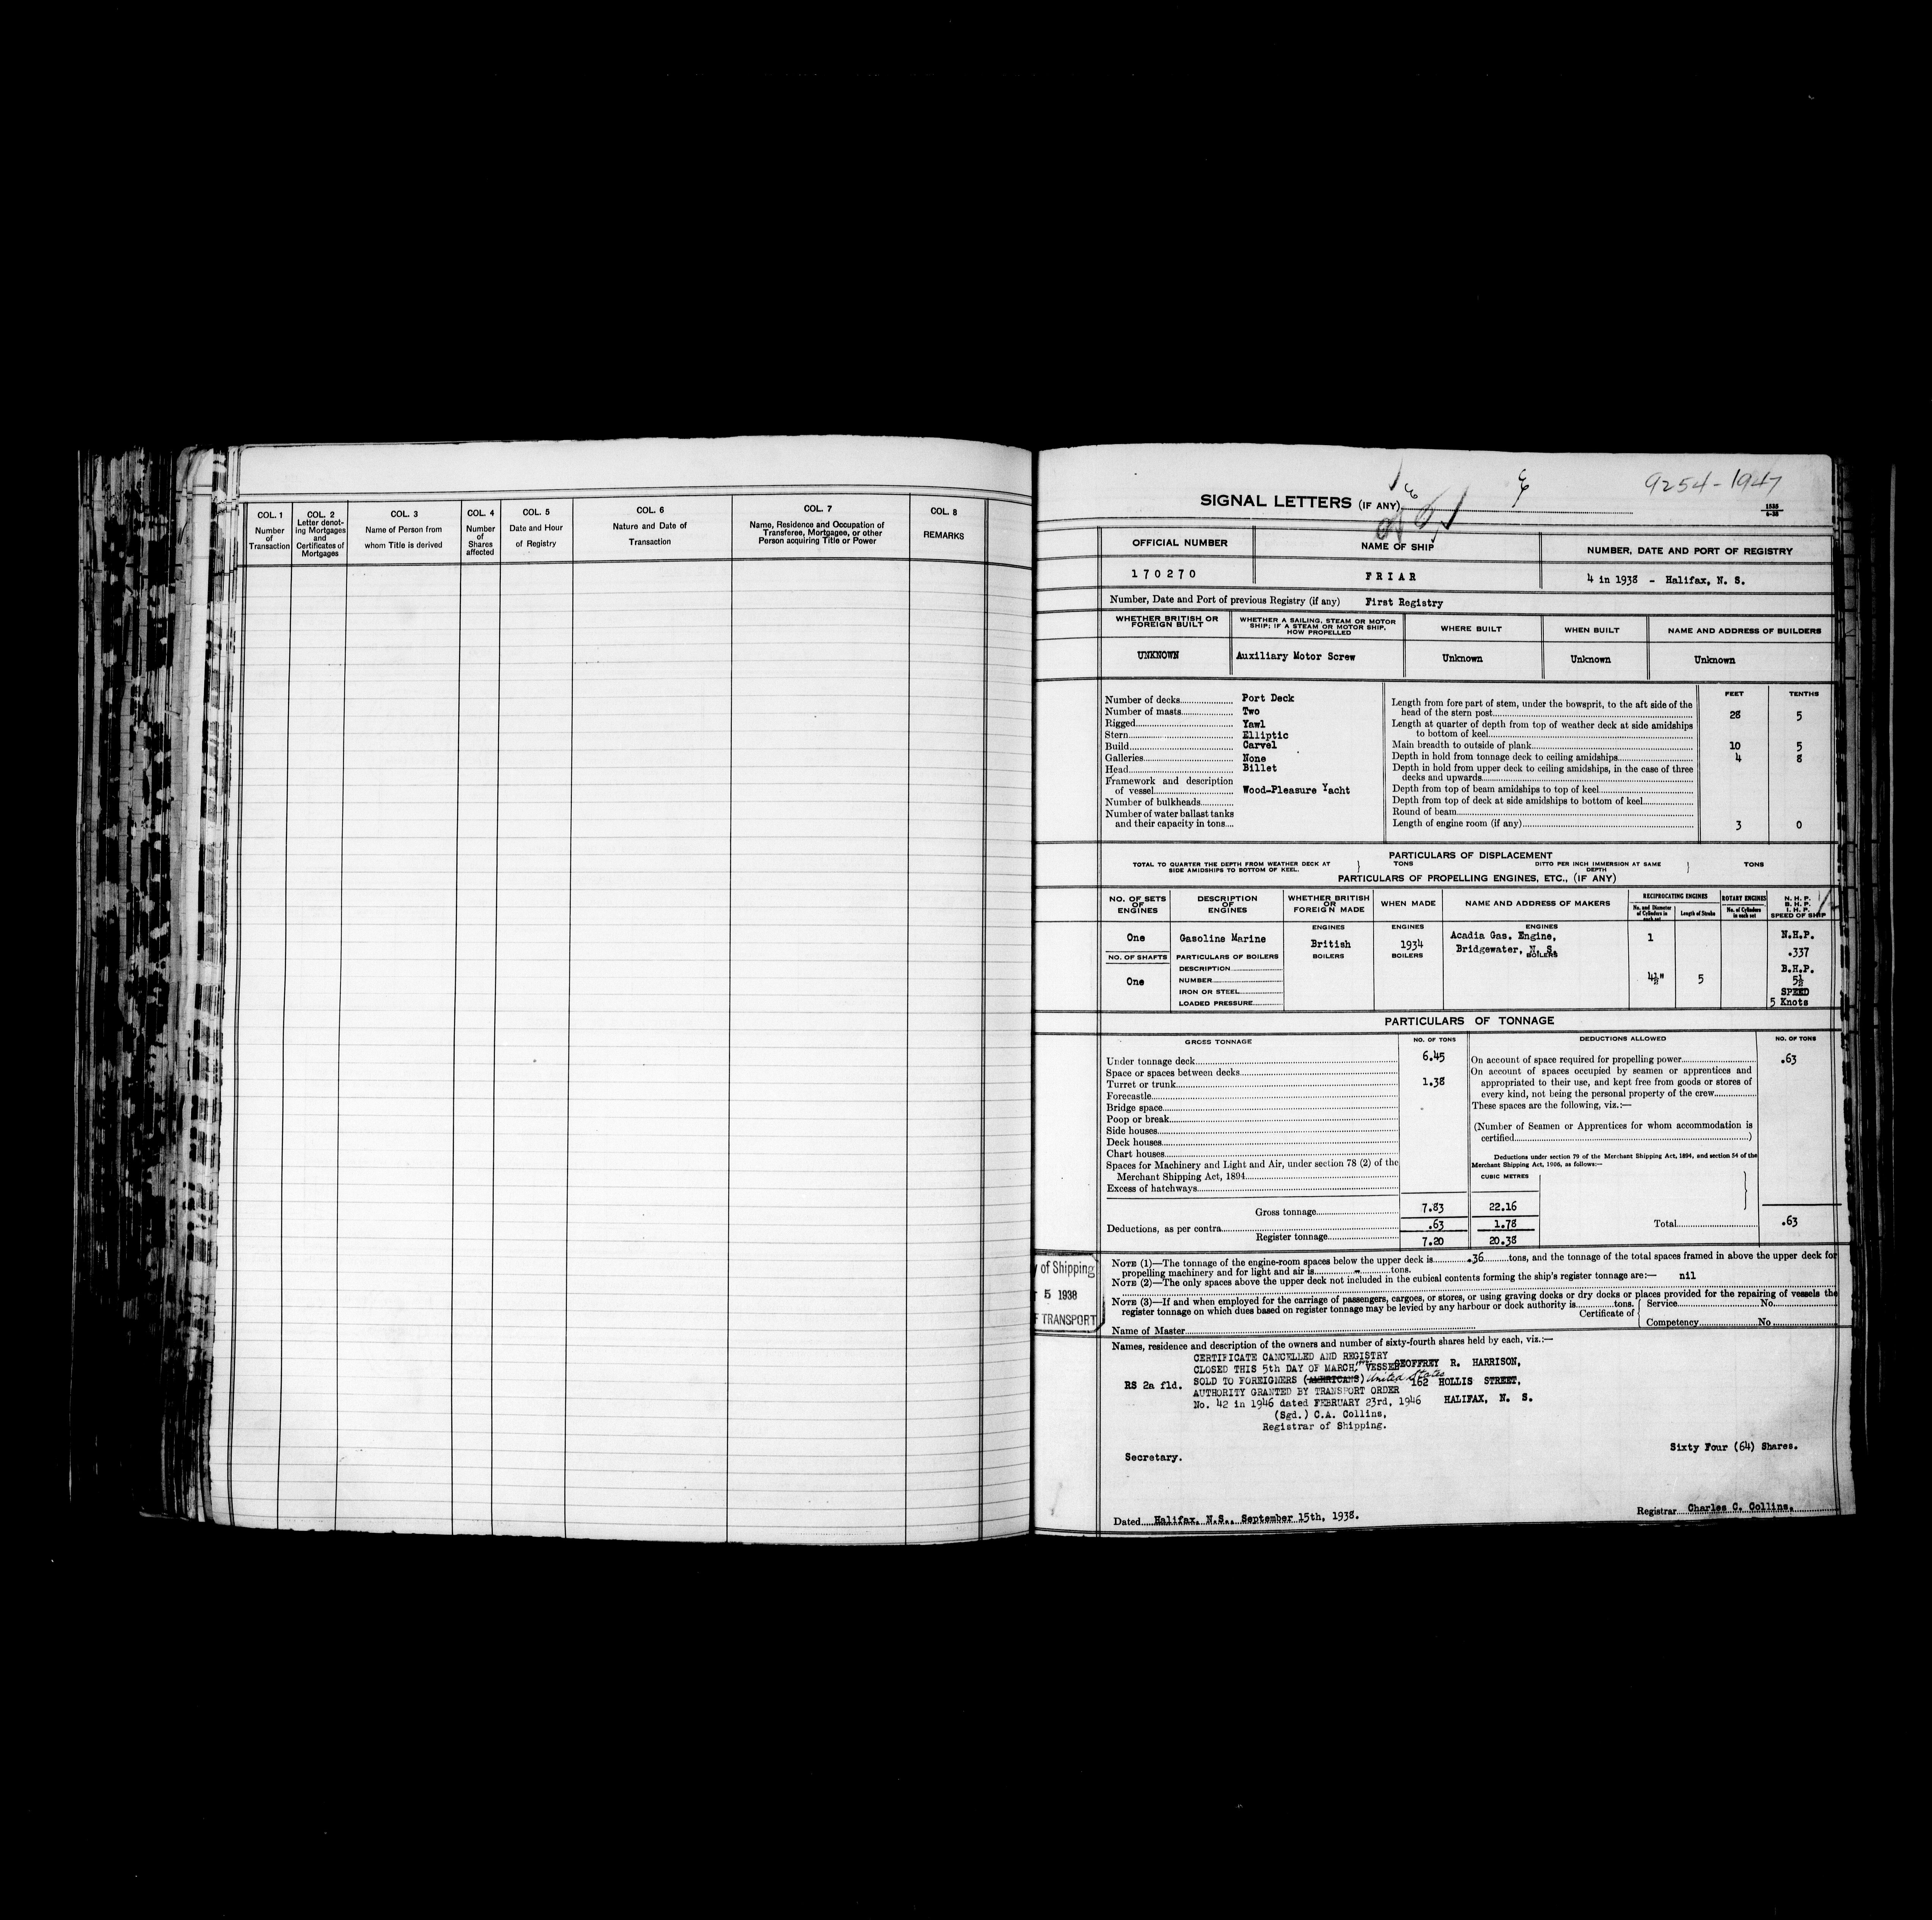 COL. 1
Number
of
Transaction
COL. 2
Letter denot-
ing Mortgages
and
Certificates of
Mortgages
COL. 3
Name of Person from
whom Title is derived
COL. 4
Number
of
Shares
affected
COL. 5
Date and Hour
of Registry
COL. 6
Nature and Date of
Transaction
COL. 7
Name, Residence and Occupation of
Transferee, Mortgagee, or other
Person acquiring Title or Power
COL. 8
REMARKS
9254-1947
SIGNAL LETTERS (IF ANY)
OFFICIAL NUMBER
170270
NAME OF SHIP
FRIAR
NUMBER, DATE AND PORT OF REGISTRY
4 in 1938 - Halifax, N. S.
Number, Date and Port of previous Registry (if any) First Registry
WHETHER BRITISH OR
FOREIGN BUILT
UNKNOWN
WHETHER A SAILING, STEAM OR MOTOR
SHIP; IF A STEAM OR MOTOR SHIP,
HOW PROPELLED
Auxiliary Motor Screw
WHERE BUILT
Unknown
WHEN BUILT
Unknown
NAME AND ADDRESS OF BUILDERS
Unknown
Number of decks Port Deck
Number of masts Two
Rigged Yawl
Stern Elliptic
Build Carvel
Galleries None
Head Billet
Framework and description
of vessel Wood-Pleasure Yacht
Number of bulkheads
Number of water ballast tanks
and their capacity in tons
FEET TENTHS
Length from fore part of stem, under the bowsprit, to the aft side of the
head of the stern post 28 5
Length at quarter of depth from top of weather deck at side amidships
to bottom of keel
Main breadth to outside of plank 10 5
Depth in hold from tonnage deck to ceiling amidships 4 8
Depth in hold from upper deck to ceiling amidships, in the case of three
decks and upwards
Depth from top of beam amidships to top of keel
Depth from top of deck at side amidships to bottom of keel
Round of beam
Length of engine room (if any) 3 0
PARTICULARS OF DISPLACEMENT
TOTAL TO QUARTER THE DEPTH FROM WEATHER DECK AT
SIDE AMIDSHIPS TO BOTTOM OF KEEL.
TONS
DITTO PER INCH IMMERSION AT SAME
DEPTH
TONS
PARTICULARS OF PROPELLING ENGINES, ETC., (IF ANY)
NO. OF SETS
OF
ENGINES
One
NO. OF SHAFTS
One
DESCRIPTION
OF
ENGINES
Gasoline Marine
PARTICULARS OF BOILERS
DESCRIPTION
NUMBER
IRON OR STEEL
LOADED PRESSURE
WHETHER BRITISH
OR
FOREIGN MADE
ENGINES
British
BOILERS
WHEN MADE
ENGINES
1934
BOILERS
NAME AND ADDRESS OF MAKERS
ENGINES
Acadia Gas. Engine,
Bridgewater, N. S.
BOILERS
RECIPROCATING ENGINES
No. and Diameter
of Cylinders in
each set
1
4½"
Length of Stroke
5
ROTARY ENGINES
No. of Cylinders
in each set
N. H. P.
B. H. P.
I. H. P.
SPEED OF SHIP
N.H.P.
.337
B.H.P.
5½
SPEED
5 Knots
PARTICULARS OF TONNAGE
GROSS TONNAGE NO. OF TONS
Under tonnage deck 6.45
Space or spaces between decks
Turret or trunk 1.38
Forecastle
Bridge space
Poop or break
Side houses
Deck houses
Chart houses
Spaces for Machinery and Light and Air, under section 78 (2) of the
Merchant Shipping Act, 1894
Excess of hatchways
Gross tonnage 7.83 22.16
Deductions, as per contra .63 1.78
Register tonnage 7.20 20.38
DEDUCTIONS ALLOWED NO. OF TONS
On account of space required for propelling power .63
On account of spaces occupied by seamen or apprentices and
appropriated to their use, and kept free from goods or stores of
every kind, not being the personal property of the crew
These spaces are the following, viz.:—
(Number of Seamen or Apprentices for whom accommodation is
certified)
Deductions under section 79 of the Merchant Shipping Act, 1894, and section 54 of the
Merchant Shipping Act, 1906, as follows:—
CUBIC METRES
Total .63
NOTE (1)—The tonnage of the engine-room spaces below the upper deck is .36 tons, and the tonnage of the total spaces framed in above the upper deck for
propelling machinery and for light and air is - tons.
NOTE (2)—The only spaces above the upper deck not included in the cubical contents forming the ship's register tonnage are:— nil
NOTE (3)—If and when employed for the carriage of passengers, cargoes, or stores, or using graving docks or dry docks or places provided for the repairing of vessels the
register tonnage on which dues based on register tonnage may be levied by any harbour or dock authority is tons.
Certificate of { Service No.
Competency No
Name of Master
of Shipping
5 1938
TRANSPORT
Names, residence and description of the owners and number of sixty-fourth shares held by each, viz.:—
RS 2a fld.
CERTIFICATE CANCELLED AND REGISTRY
CLOSED THIS 5th DAY OF MARCH, VESSEL
SOLD TO FOREIGNERS (AMERICANS) United States
AUTHORITY GRANTED BY TRANSPORT ORDER
No. 42 in 1946 dated FEBRUARY 23rd, 1946
(Sgd.) C.A. Collins,
Registrar of Shipping.
GEOFFREY R. HARRISON,
162 HOLLIS STREET,
HALIFAX, N. S.
Sixty Four (64) Shares.
Secretary.
Dated Halifax, N.S., September 15th, 1938.
Registrar Charles C. Collins.